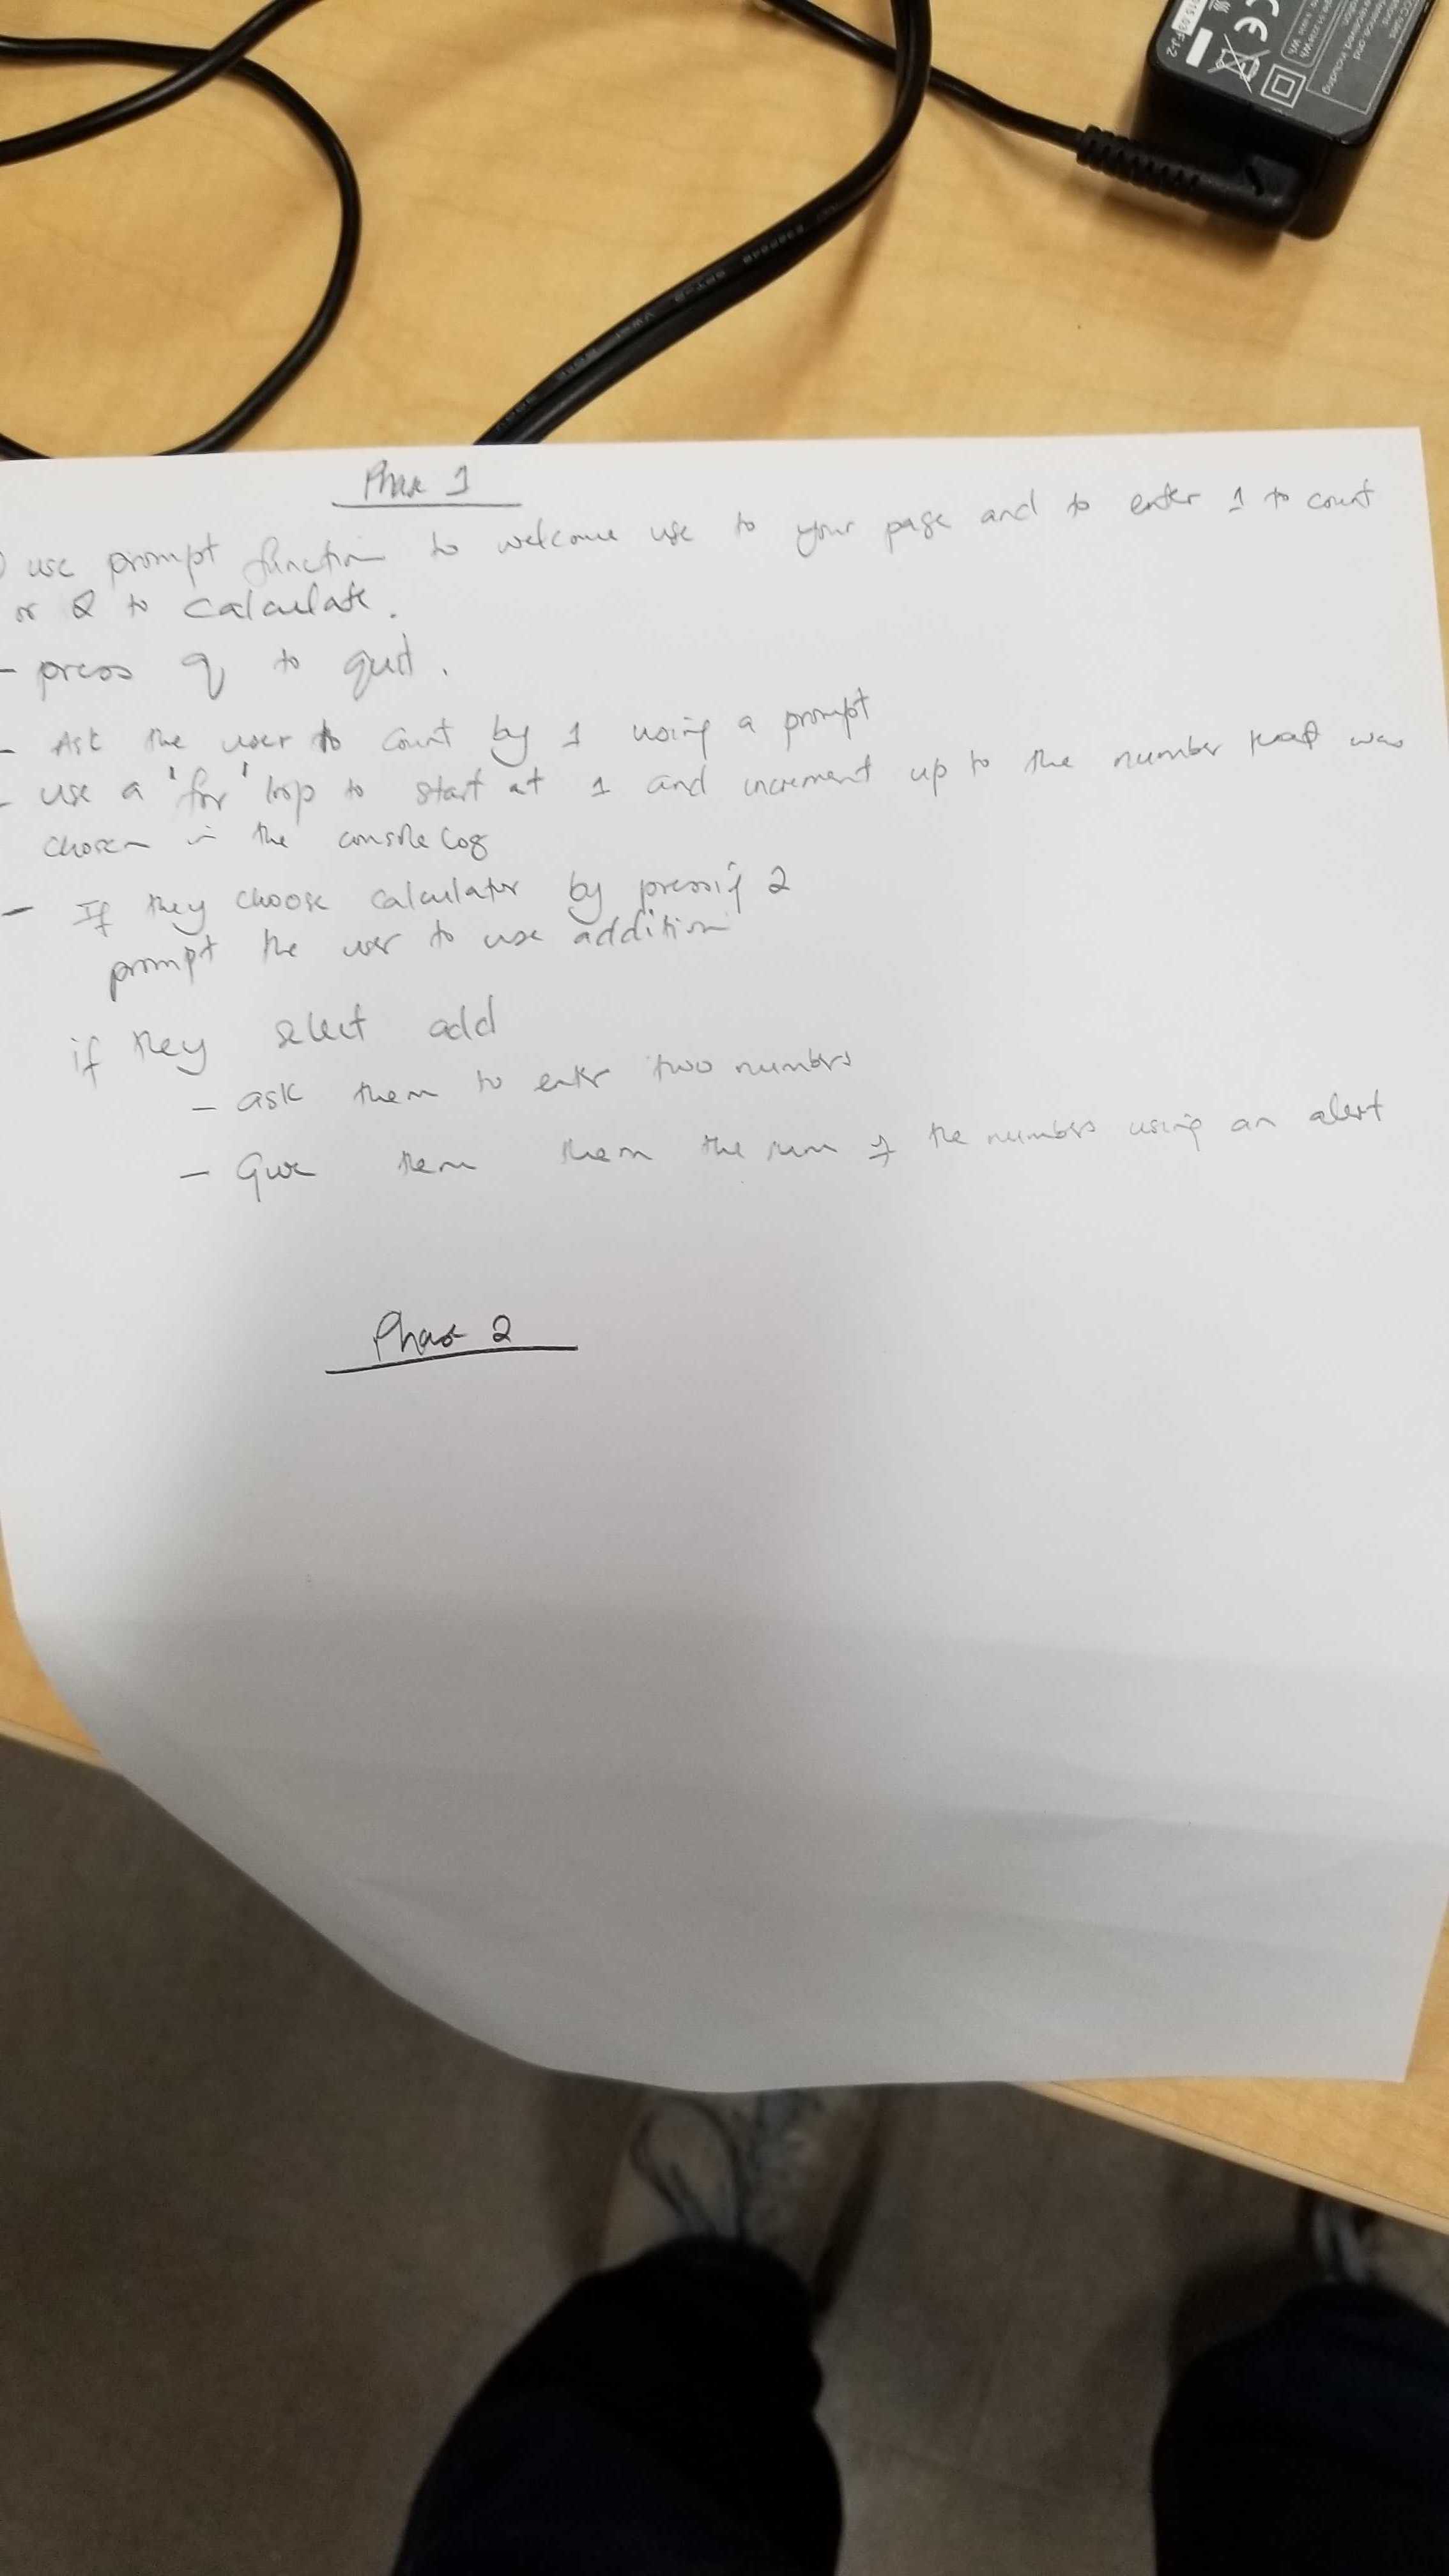 CE
Phase 1
use prompt function to welcome use to your page and to enter 1 to count
or 2 to calculate.
- press q to quit.
- Ask the user to count by 1 using a prompt
- use a 'for' loop to start at 1 and increment up to the number that was
chosen in the console log
- If they choose calculator by pressing 2
prompt the user to use addition
if they select add
- ask them to enter two numbers
- Give them them the sum of the numbers using an alert
Phase 2